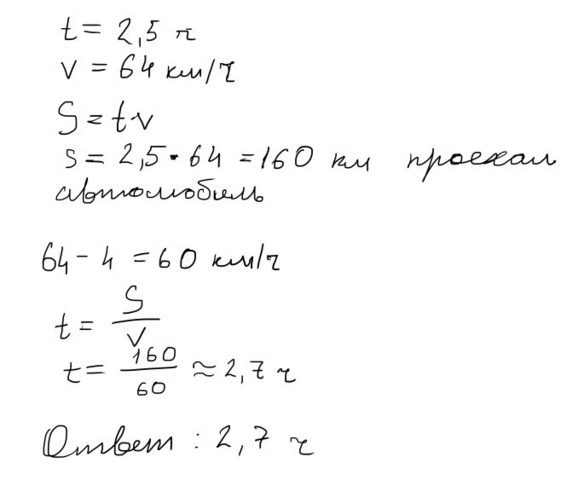 t = 2,5 ч
v = 64 км/ч
S = tv
s = 2,5 · 64 = 160 км проехал
автомобиль
64 - 4 = 60 км/ч
t = S/v
t = 160/60 ≈ 2,7 ч
Ответ : 2,7 ч